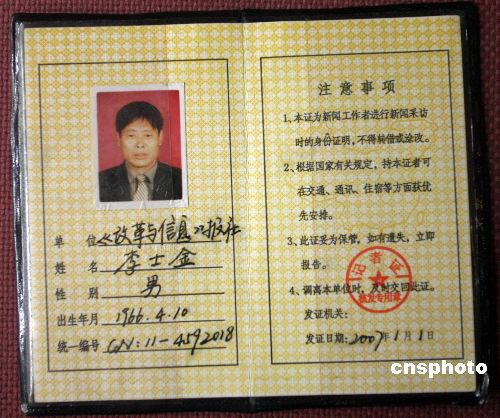 单 位《改革与信息》报社
姓 名 李士金
性 别 男
出生年月 1966.4.10
统一编号 CN:11-4592018
注意事项
1、本证为新闻工作者进行新闻采访
时的身份证明，不得转借或涂改。
2、根据国家有关规定，持本证者可
在交通、通讯、住宿等方面获优
先安排。
3、此证妥为保管，如有遗失，立即
报告。
4、调离本单位时，及时交回此证。
发证机关：
发证日期：2007年1月1日
记者证
核发专用章
cnsphoto